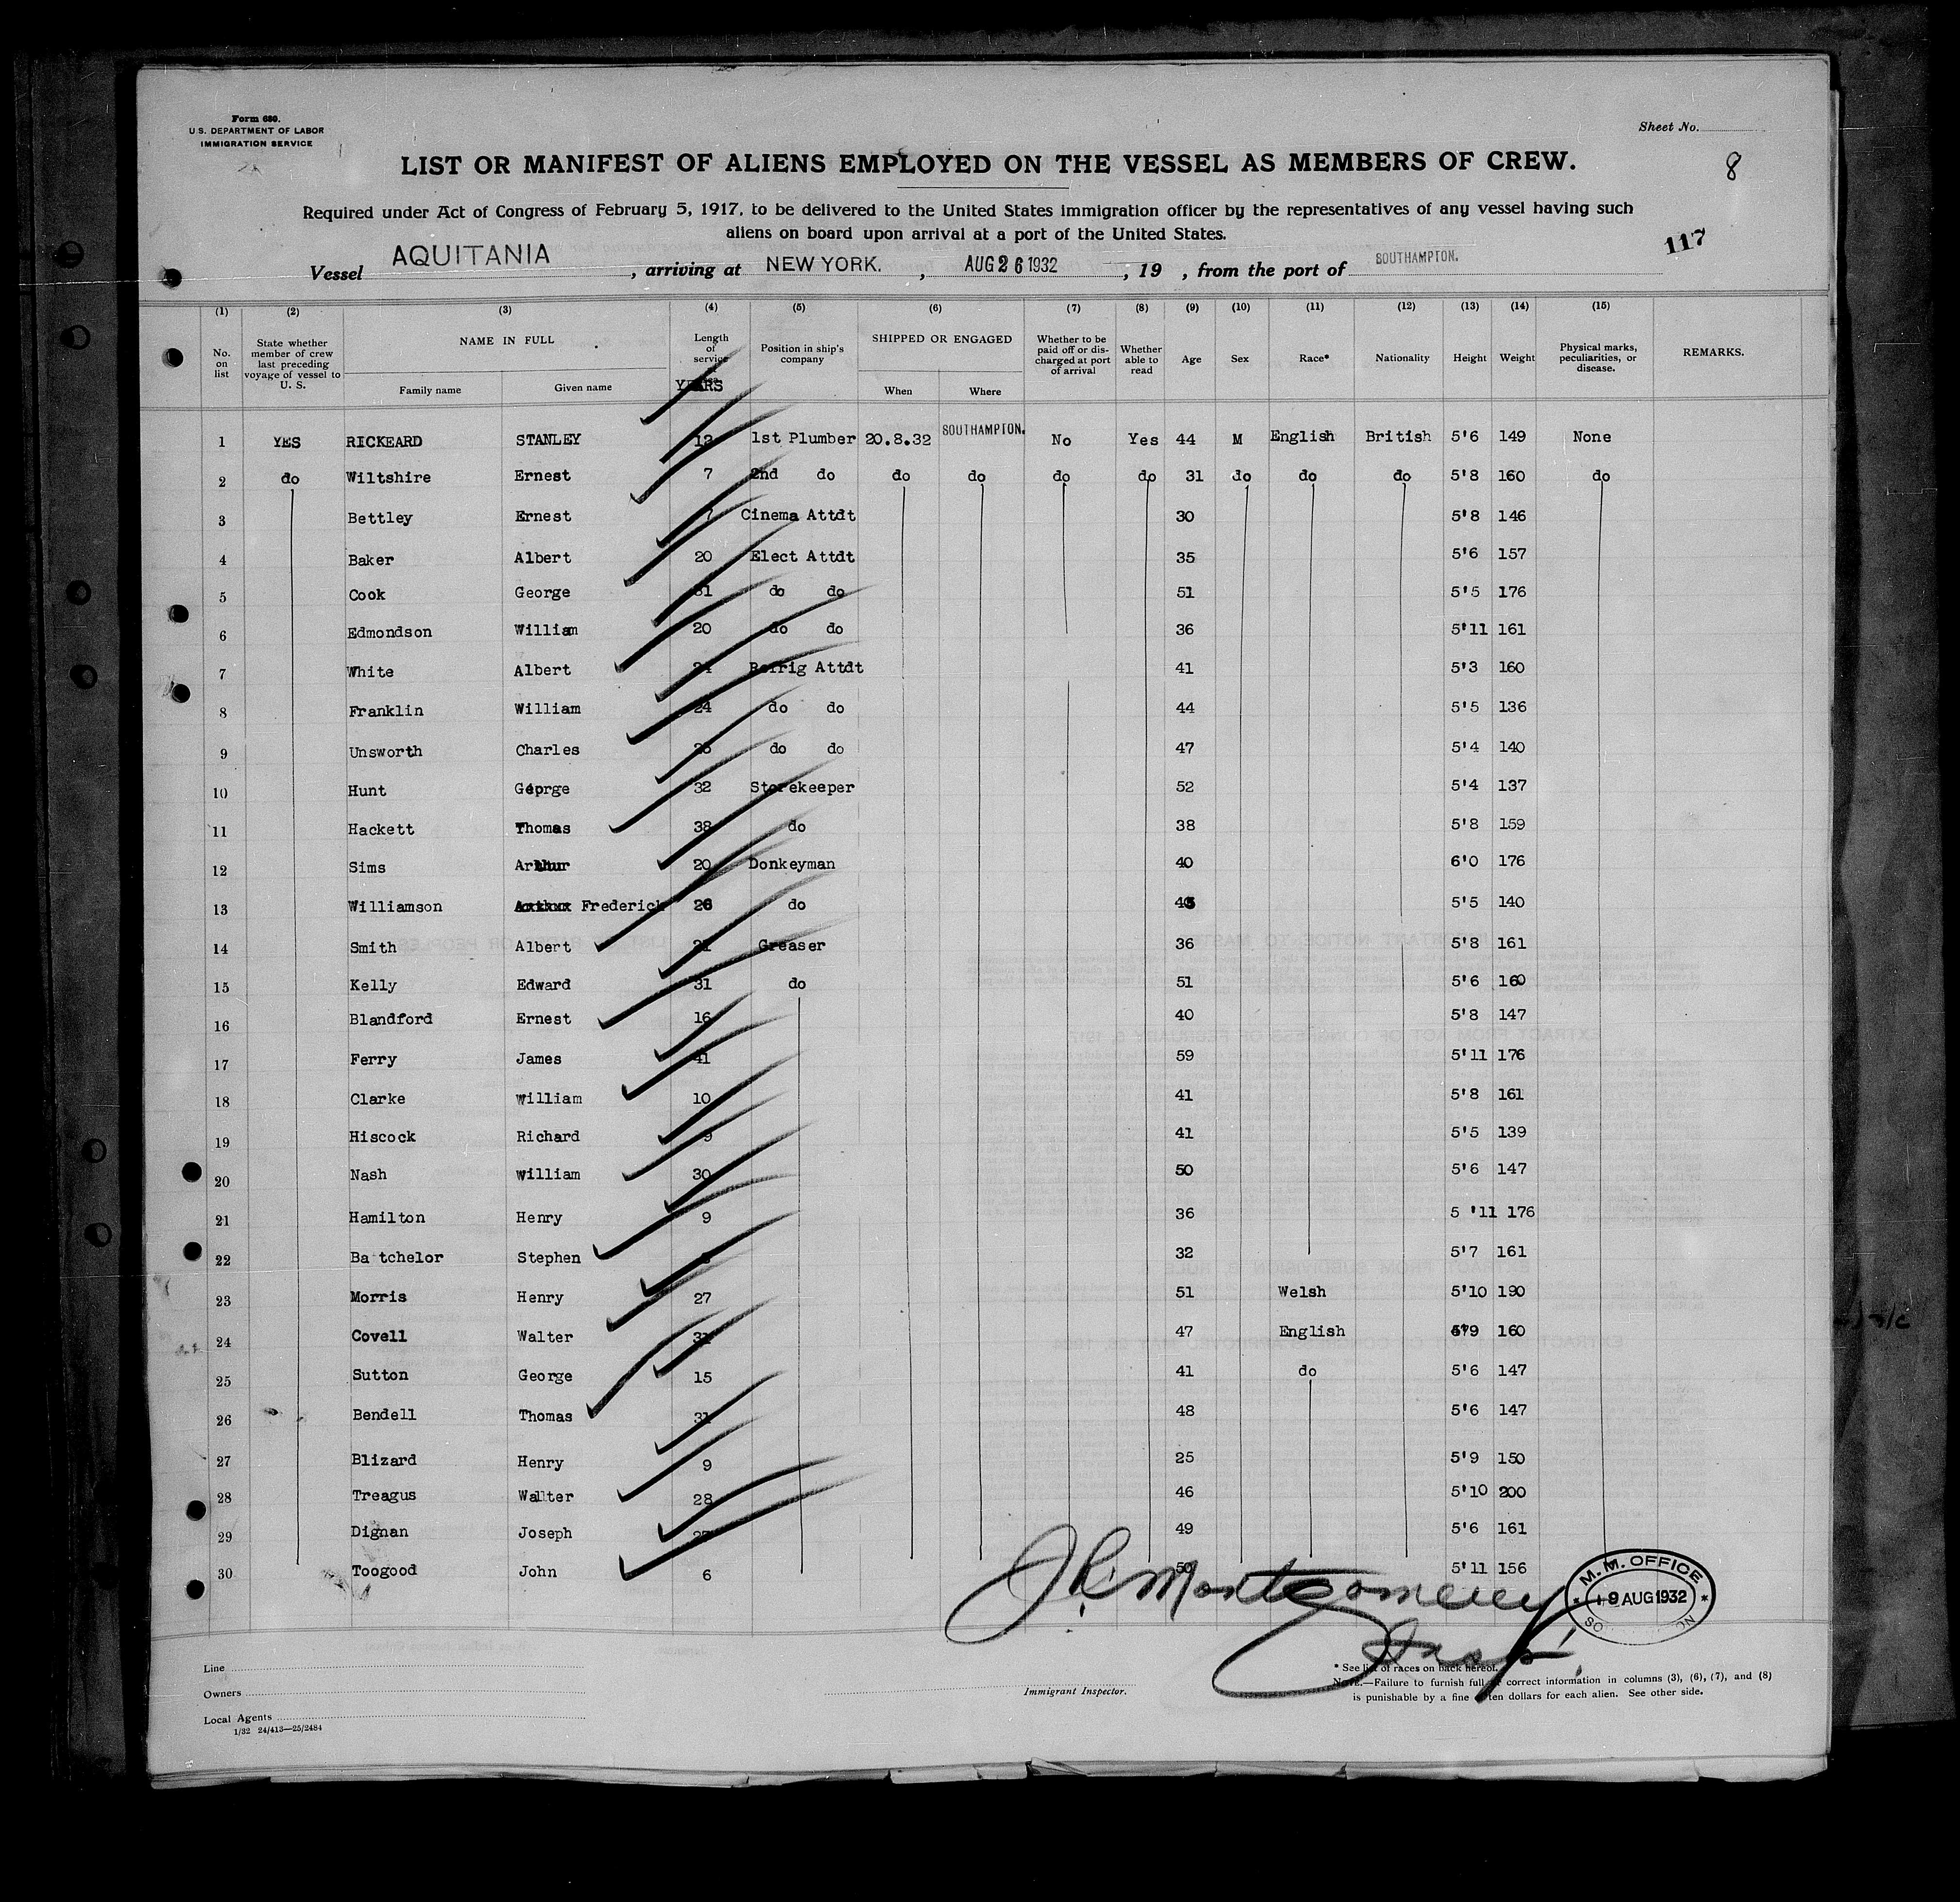 Form 680.
U.S. DEPARTMENT OF LABOR
IMMIGRATION SERVICE
Sheet No.
8
LIST OR MANIFEST OF ALIENS EMPLOYED ON THE VESSEL AS MEMBERS OF CREW.
Required under Act of Congress of February 5, 1917, to be delivered to the United States immigration officer by the representatives of any vessel having such
aliens on board upon arrival at a port of the United States.
117
Vessel AQUITANIA, arriving at NEW YORK., AUG 26 1932, 19 , from the port of SOUTHAMPTON.
(1) (2) (3) (4) (5) (6) (7) (8) (9) (10) (11) (12) (13) (14) (15)
No. on list State whether member of crew last preceding voyage of vessel to U. S. NAME IN FULL Family name Given name Length of service YEARS Position in ship's company SHIPPED OR ENGAGED When Where Whether to be paid off or discharged at port of arrival Whether able to read Age Sex Race* Nationality Height Weight Physical marks, peculiarities, or disease. REMARKS.
1 YES RICKEARD STANLEY 12 1st Plumber 20.8.32 SOUTHAMPTON. No Yes 44 M English British 5'6 149 None
2 do Wiltshire Ernest 7 2nd do do do do do 31 do do do 5'8 160 do
3 Bettley Ernest 7 Cinema Attdt 30 5'8 146
4 Baker Albert 20 Elect Attdt 35 5'6 157
5 Cook George 31 do do 51 5'5 176
6 Edmondson William 20 do do 36 5'11 161
7 White Albert 24 Refrig Attdt 41 5'3 160
8 Franklin William 24 do do 44 5'5 136
9 Unsworth Charles do do 47 5'4 140
10 Hunt George 32 Storekeeper 52 5'4 137
11 Hackett Thomas 38 do 38 5'8 159
12 Sims Arthur 20 Donkeyman 40 6'0 176
13 Williamson Frederick 26 do 5'5 140
14 Smith Albert 21 Greaser 36 5'8 161
15 Kelly Edward 31 do 51 5'6 160
16 Blandford Ernest 16 40 5'8 147
17 Ferry James 41 59 5'11 176
18 Clarke William 10 41 5'8 161
19 Hiscock Richard 9 41 5'5 139
20 Nash William 30 50 5'6 147
21 Hamilton Henry 9 36 5 '11 176
22 Ba tchelor Stephen 32 5'7 161
23 Morris Henry 27 51 Welsh 5'10 190
24 Covell Walter 31 47 English 5'9 160
25 Sutton George 15 41 do 5'6 147
26 Bendell Thomas 31 48 5'6 147
27 Blizard Henry 9 25 5'9 150
28 Treagus Walter 28 46 5'10 200
29 Dignan Joseph 27 49 5'6 161
30 Toogood John 6 50 5'11 156
Montgomery
Insp.
M. M. OFFICE
19 AUG 1932
Line
Owners
Local Agents
1/32 24/413—25/2484
Immigrant Inspector.
* See list of races on back hereof.
NOTE.—Failure to furnish full or correct information in columns (3), (6), (7), and (8)
is punishable by a fine of ten dollars for each alien. See other side.